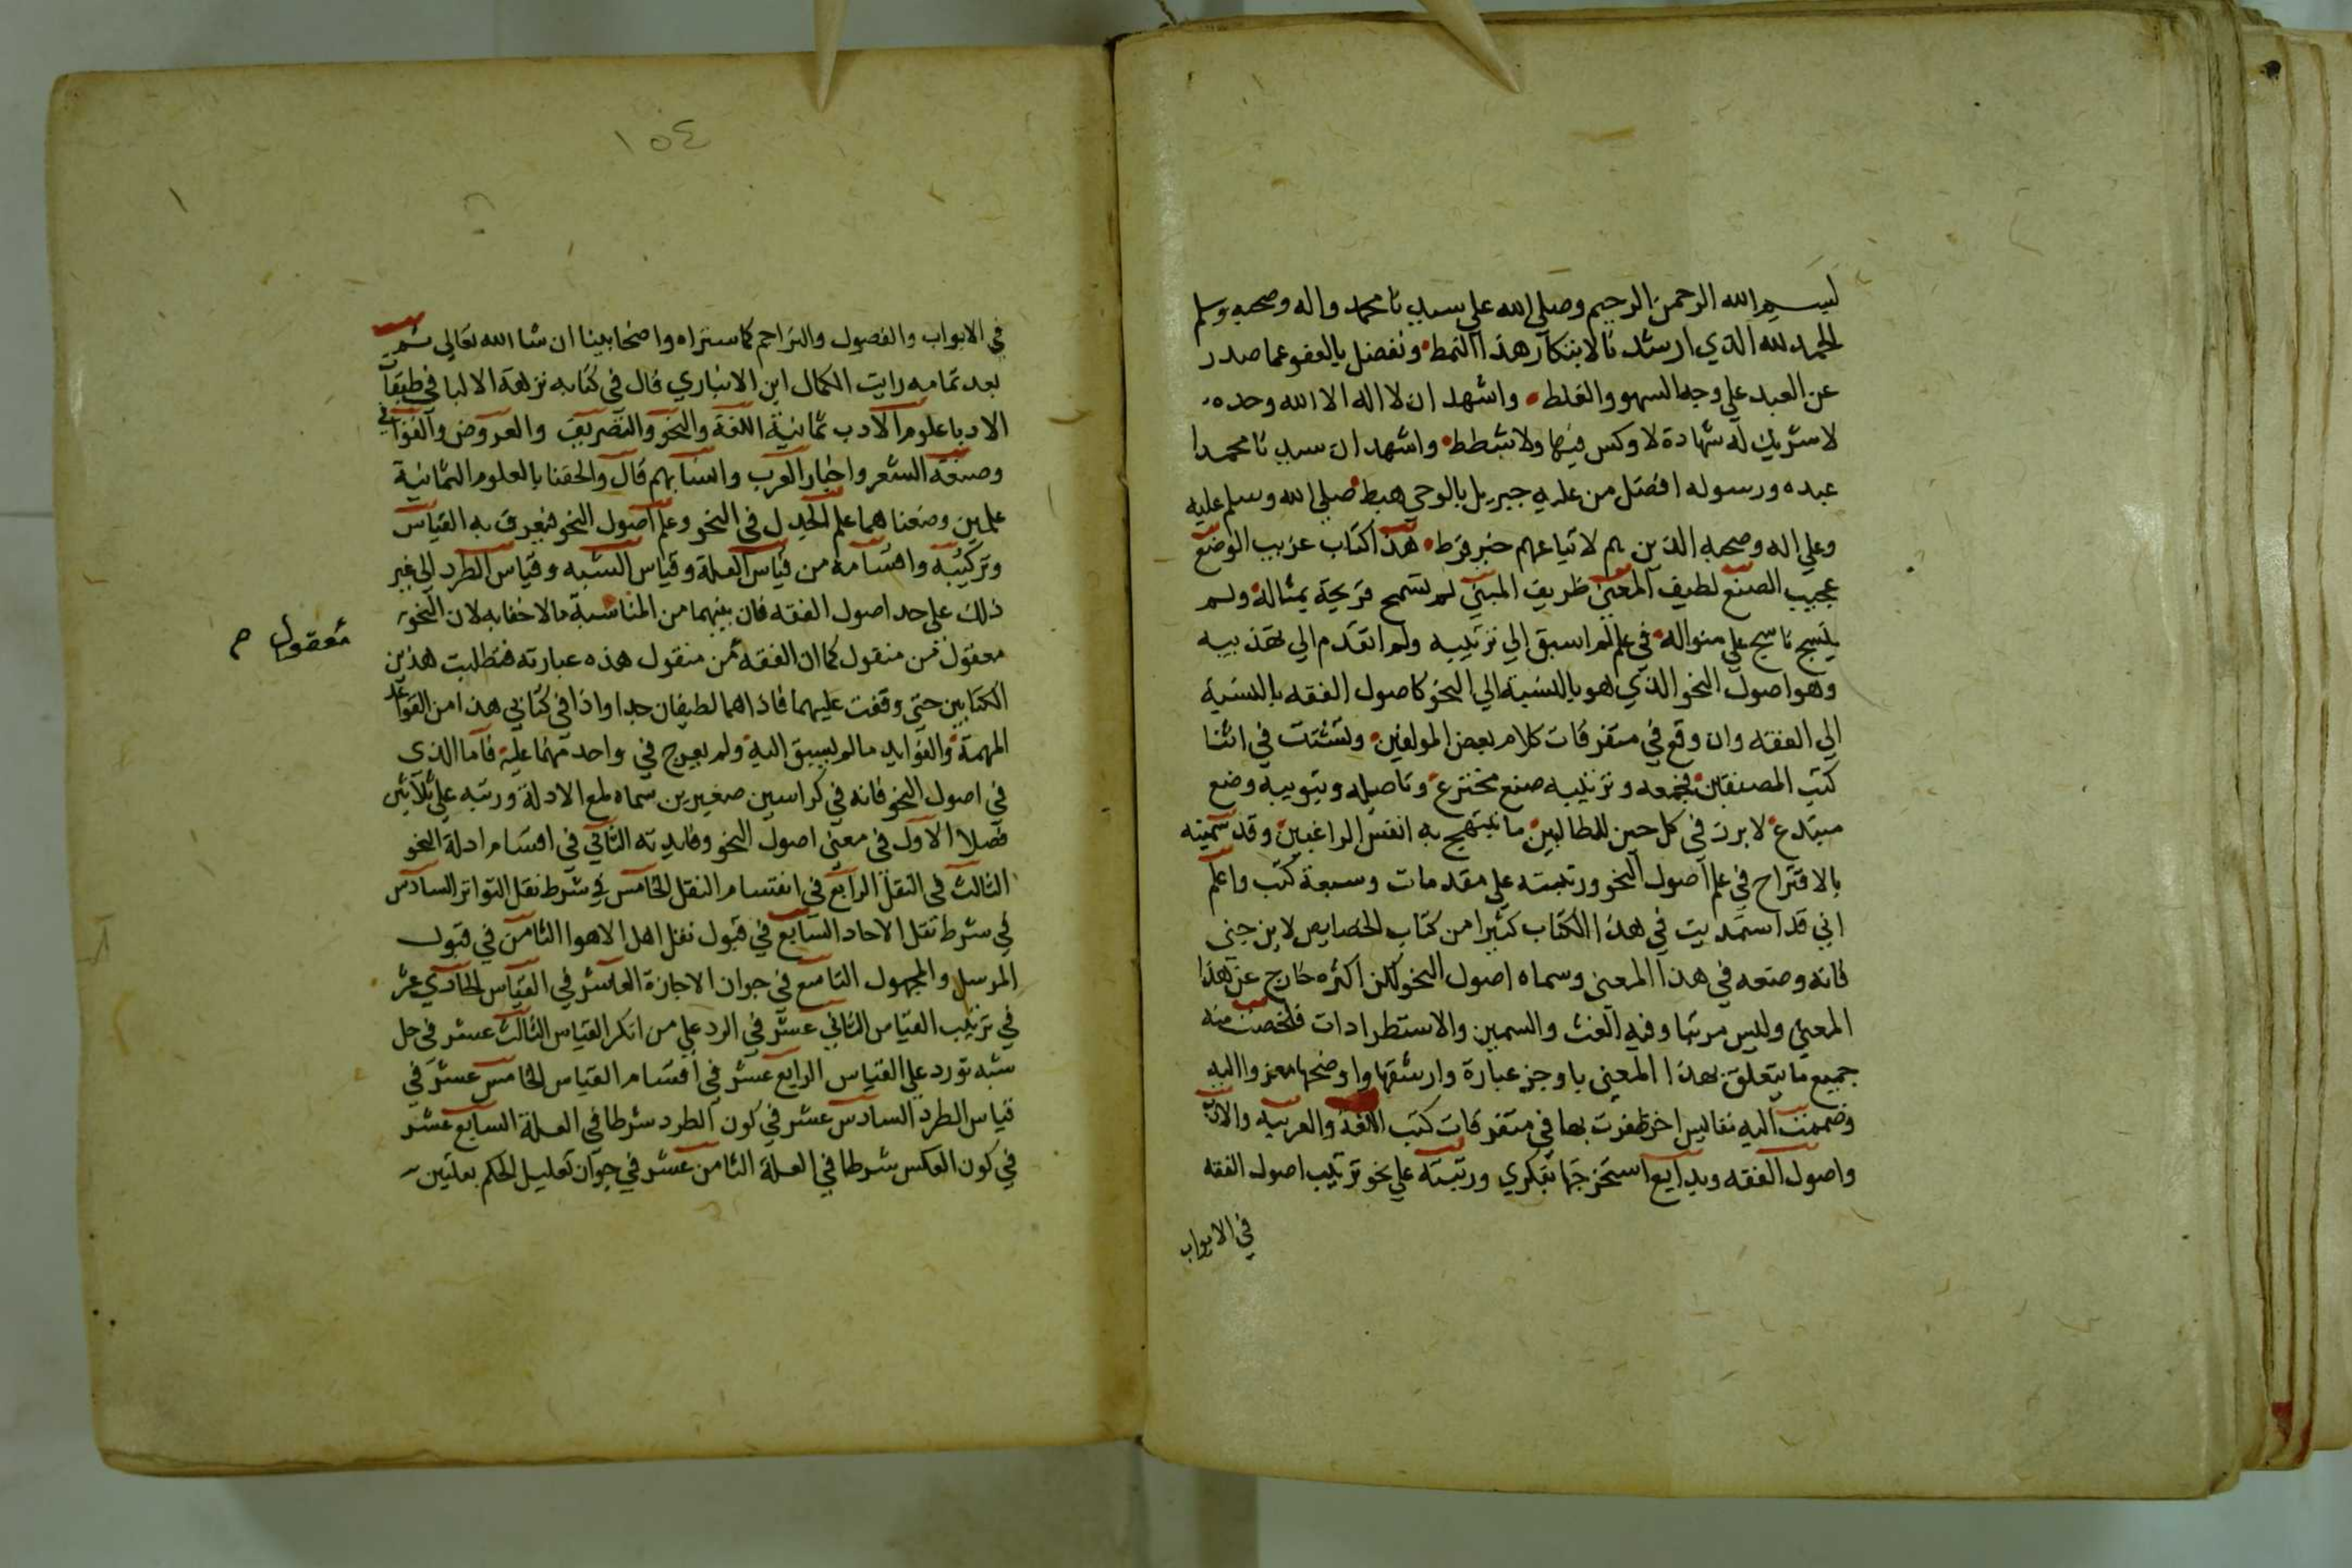 بسم الله الرحمن الرحيم وصلى الله على سيدنا محمد واله وصحبه وسلم
الحمد لله الذي ارشد نا لابتكار هذا النمط وتفضل بالعفو عما صدر
عن العبد على وجه السهو والغلط واشهد ان لا اله الا الله وحده
لا شريك له شهادة لا وكس فيها ولا شطط واشهد ان سيدنا محمدا
عبده ورسوله افضل من عليه جبريل بالوحي هبط صلى الله وسلم عليه
وعلى اله وصحبه الذين هم لاتباعهم خير فرط هذا كتاب غريب الوضع
عجيب الصنع لطيف المعنى ظريف المبنى لم تسمح قريحة بمثاله ولم
ينسج ناسج على منواله في علم لم اسبق الى ترتيبه ولم اتقدم الى تهذيبه
وهو اصول النحو الذي هو بالنسبة الى النحو كاصول الفقه بالنسبة
الى الفقه وان وقع في متفرقات كلام بعض المولفين وتشتت في اثنا
كتب المصنفين فجمعه وترتيبه صنع مخترع وتاصيله وتبويبه وضع
مبتدع لابرز في كل حين للطالبين ما تبتهج به انفس الراغبين وقد سميته
بالاقتراح في علم اصول النحو ورتبته على مقدمات وسبعة كتب واعلم
اني قد استمديت في هذا الكتاب كثيرا من كتاب الخصايص لابن جنى
فانه وضعه في هذا المعنى وسماه اصول النحو لكن اكثره خارج عن هذا
المعنى وليس مرتبا وفيه الغث والسمين والاستطرادات فلخصت منه
جميع ما يتعلق بهذا المعنى باوجز عبارة وارشقها واوضحها معزوا اليه
وضممت اليه نفايس اخر ظفرت بها في متفرقات كتب اللغة والعربية والادب
واصول الفقه وبدايع استخرجتها بفكري ورتبته على نحو ترتيب اصول الفقه
في الابواب
١٥٤
١
في الابواب والفصول والتراجم كما ستراه واضحا بينا ان شا الله تعالى ثم
بعد تمامه رايت الكمال ابن الانباري قال في كتابه نزهة الالبا في طبقات
الادبا علوم الادب ثمانية اللغة والنحو والتصريف والعروض والقوافي
وصنعة الشعر واخبار العرب وانسابهم قال والحقنا بالعلوم الثمانية
علمين وضعنا هما علم الجدل في النحو وعلم اصول النحو فيعرف به القياس
وتركيبه واقسامه من قياس العلة وقياس الشبه وقياس الطرد الى غير
ذلك على حد اصول الفقه فان بينهما من المناسبة مالا خفا به لان النحو
معقول من منقول كما ان الفقه من منقول هذه عبارته فتطلبت هذين
معقول م
الكتابين حتى وقفت عليهما فاذا هما لطيفان جدا واذا في كتابي هذا من القواعد
المهمة والفوايد ما لم يسبق اليه ولم يعرج في واحد منهما عليه فاما الذي
في اصول النحو فانه في كراسين صغيرين سماه لمع الادلة ورتبه على ثلاثين
فصلا الاول في معنى اصول النحو وفايدته الثاني في اقسام ادلة النحو
الثالث في النقل الرابع في انقسام النقل الخامس في شرط نقل التواتر السادس
في شرط نقل الاحاد السابع في قبول نقل اهل الاهوا الثامن في قبول
المرسل والمجهول التاسع في جواز الاجازة العاشر في القياس الحادي عشر
في تركيب القياس الثاني عشر في الرد على من انكر القياس الثالث عشر في حل
شبه تورد على القياس الرابع عشر في اقسام القياس الخامس عشر في
قياس الطرد السادس عشر في كون الطرد شرطا في العلة السابع عشر
في كون العكس شرطا في العلة الثامن عشر في جواز تعليل الحكم بعلتين